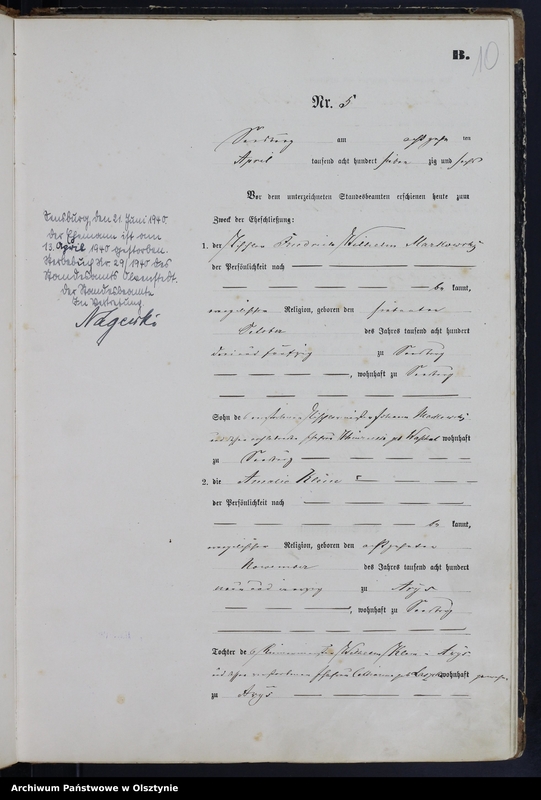 B. 10
Nr. 5
Sensburg am achtzehn ten
April tausend acht hundert sieben zig und sechs
Vor dem unterzeichneten Standesbeamten erschienen heute zum
Zweck der Eheschließung:
1. der Friedrich Wilhelm Markowski
der Persönlichkeit nach
be kannt,
evangelischer Religion, geboren den siebenten
October des Jahres tausend acht hundert
drei und fünfzig zu Sensburg
, wohnhaft zu Sensburg
Sohn des verstorbenen Tischlermeister Johann Markowski
wohnhaft
zu Sensburg
2. die Amalie Klein
der Persönlichkeit nach
be kannt,
evangelischer Religion, geboren den achtzehnten
November des Jahres tausend acht hundert
neun und zu Arys
, wohnhaft zu Sensburg
Tochter des Wilhelm Klein Arys
und wohnhaft
zu Arys
Sensburg, den 21. Juni 1940
Der Ehemann ist am
13. April 1940 gestorben.
Sterbebuch Nr. 29/1940 des
Standesamts
Der Standesbeamte
In Vertretung
Nagerski
Archiwum Państwowe w Olsztynie